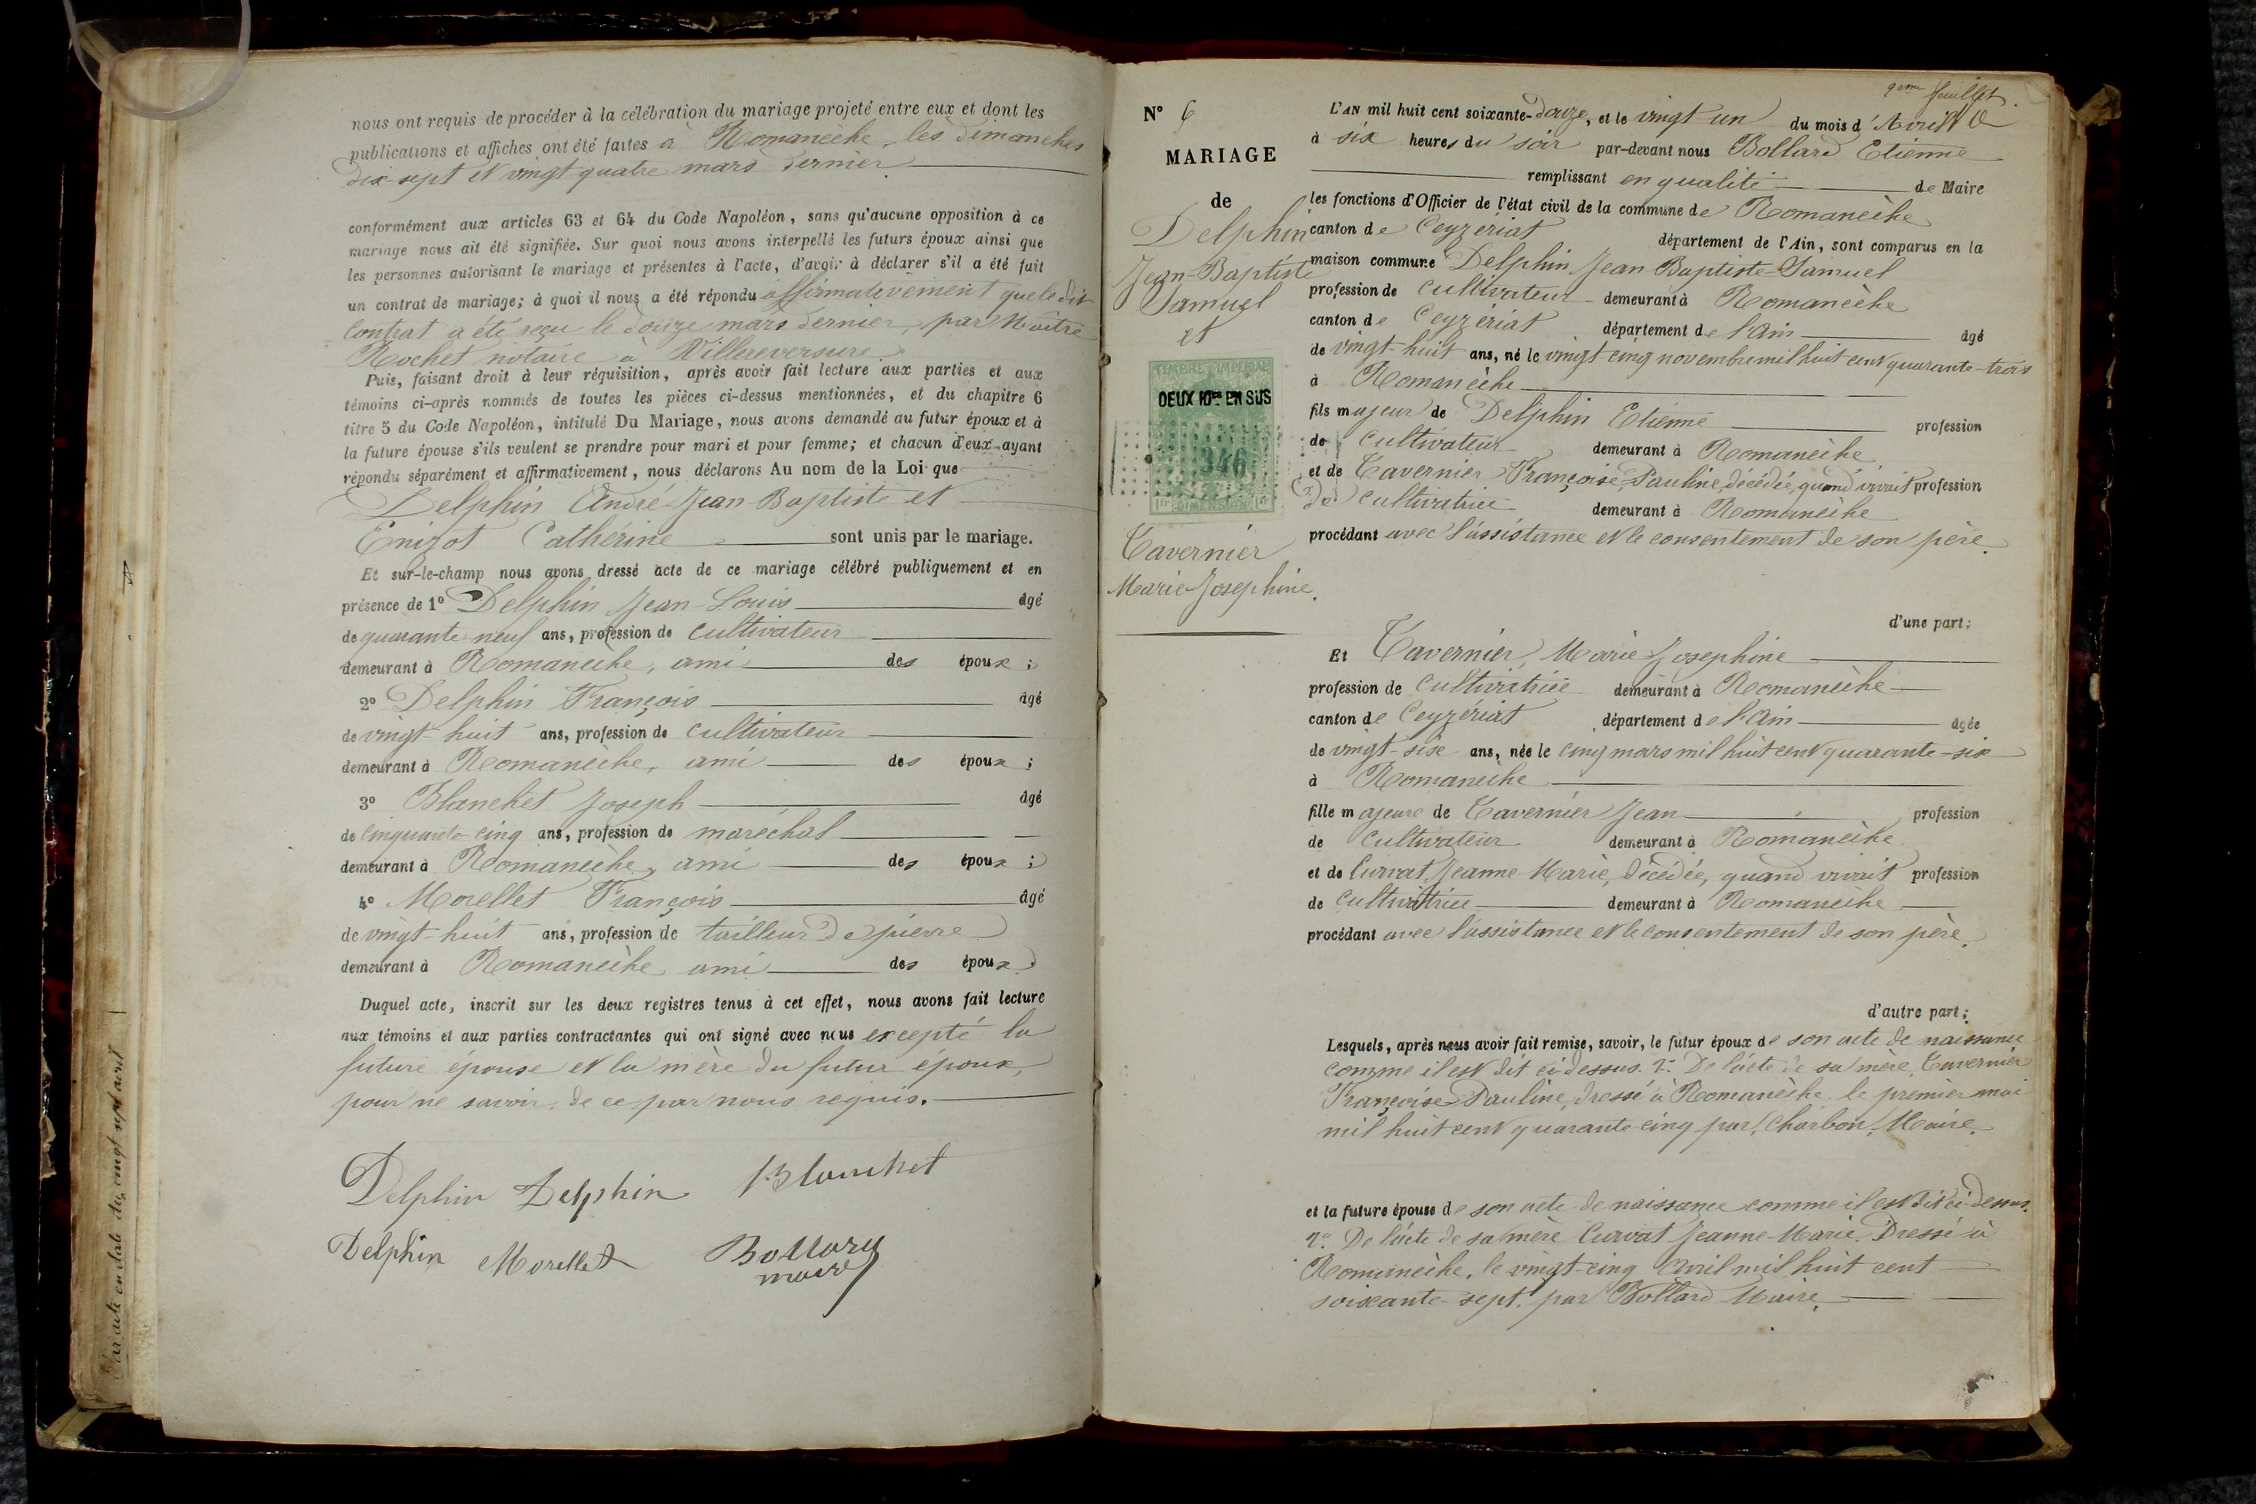 nous ont requis de procéder à la célébration du mariage projeté entre eux et dont les
publications et affiches ont été faites à Romanèche, les dimanches
dix-sept et vingt quatre mars dernier
conformément aux articles 63 et 64 du Code Napoléon, sans qu'aucune opposition à ce
mariage nous ait été signifiée. Sur quoi nous avons interpellé les futurs époux ainsi que
les personnes autorisant le mariage et présentes à l'acte, d'avoir à déclarer s'il a été fait
un contrat de mariage; à quoi il nous a été répondu affirmativement que le dit
Contrat a été reçu le douze mars dernier, par Maître
Rochet notaire à Villereversure.
Puis, faisant droit à leur réquisition, après avoir fait lecture aux parties et aux
témoins ci-après nommés de toutes les pièces ci-dessus mentionnées, et du chapitre 6
titre 5 du Code Napoléon, intitulé Du Mariage, nous avons demandé au futur époux et à
la future épouse s'ils veulent se prendre pour mari et pour femme; et chacun d'eux ayant
répondu séparément et affirmativement, nous déclarons Au nom de la Loi que
Delphin André Jean-Baptiste et
Enizot Cathérine sont unis par le mariage.
Et sur-le-champ nous avons dressé acte de ce mariage célébré publiquement et en
présence de 1º Delphin Jean-Louis âgé
de quarante neuf ans, profession de cultivateur
demeurant à Romanèche, ami des époux;
2º Delphin François âgé
de vingt-huit ans, profession de cultivateur
demeurant à Romanèche, ami des époux;
3º Blanchet Joseph âgé
de cinquante-cinq ans, profession de maréchal
demeurant à Romanèche, ami des époux;
4º Morellet François âgé
de vingt-huit ans, profession de tailleur de pierre
demeurant à Romanèche ami des époux.
Duquel acte, inscrit sur les deux registres tenus à cet effet, nous avons fait lecture
aux témoins et aux parties contractantes qui ont signé avec nous excepté la
future épouse et la mère du futur époux,
pour ne savoir, de ce par nous requis.
Delphin Delphin Blanchet
Delphin Morellet Bollard
maire
9eme feuillet.
Nº 6
MARIAGE
de
Delphin
Jean-Baptiste
Samuel
et
TIMBRE IMPÉRIAL
DEUX 10mes EN SUS
346
DIMENSION
Tavernier
Marie Josephine.
L'AN mil huit cent soixante-douze, et le vingt un du mois d'Avril
à six heures du soir par-devant nous Bollard Etienne
remplissant en qualité de Maire
les fonctions d'Officier de l'état civil de la commune de Romanèche
canton de Ceyzériat département de l'Ain, sont comparus en la
maison commune Delphin Jean Baptiste-Samuel
profession de cultivateur demeurant à Romanèche
canton de Ceyzériat département de l'Ain âgé
de vingt-huit ans, né le vingt cinq novembre mil huit cent quarante-trois
à Romanèche
fils majeur de Delphin Etienne profession
de cultivateur demeurant à Romanèche
et de Tavernier Françoise-Pauline, décédée, quand vivait profession
de cultivatrice demeurant à Romanèche
procédant avec l'assistance et le consentement de son père.
d'une part;
Et Tavernier, Marie-Josephine
profession de cultivatrice demeurant à Romanèche
canton de Ceyzériat département de l'Ain âgée
de vingt-six ans, née le cinq mars mil huit cent quarante-six
à Romanèche
fille majeure de Tavernier Jean profession
de cultivateur demeurant à Romanèche
et de Curvat, Jeanne-Marie, décédée, quand vivait profession
de cultivatrice demeurant à Romanèche
procédant avec l'assistance et le consentement de son père.
d'autre part;
Lesquels, après nous avoir fait remise, savoir, le futur époux de son acte de naissance
comme il est dit ci-dessus. 2º. De l'acte de sa mère, Tavernier
Françoise Pauline, dressé à Romanèche le premier mai
mil huit cent quarante-cinq par Charbon, Maire.
et la future épouse de son acte de naissance comme il est dit ci-dessus.
2º. De l'acte de sa mère Curvat Jeanne-Marie. Dressé à
Romanèche, le vingt-cinq Avril mil huit cent
soixante-sept, par Bollard Maire.